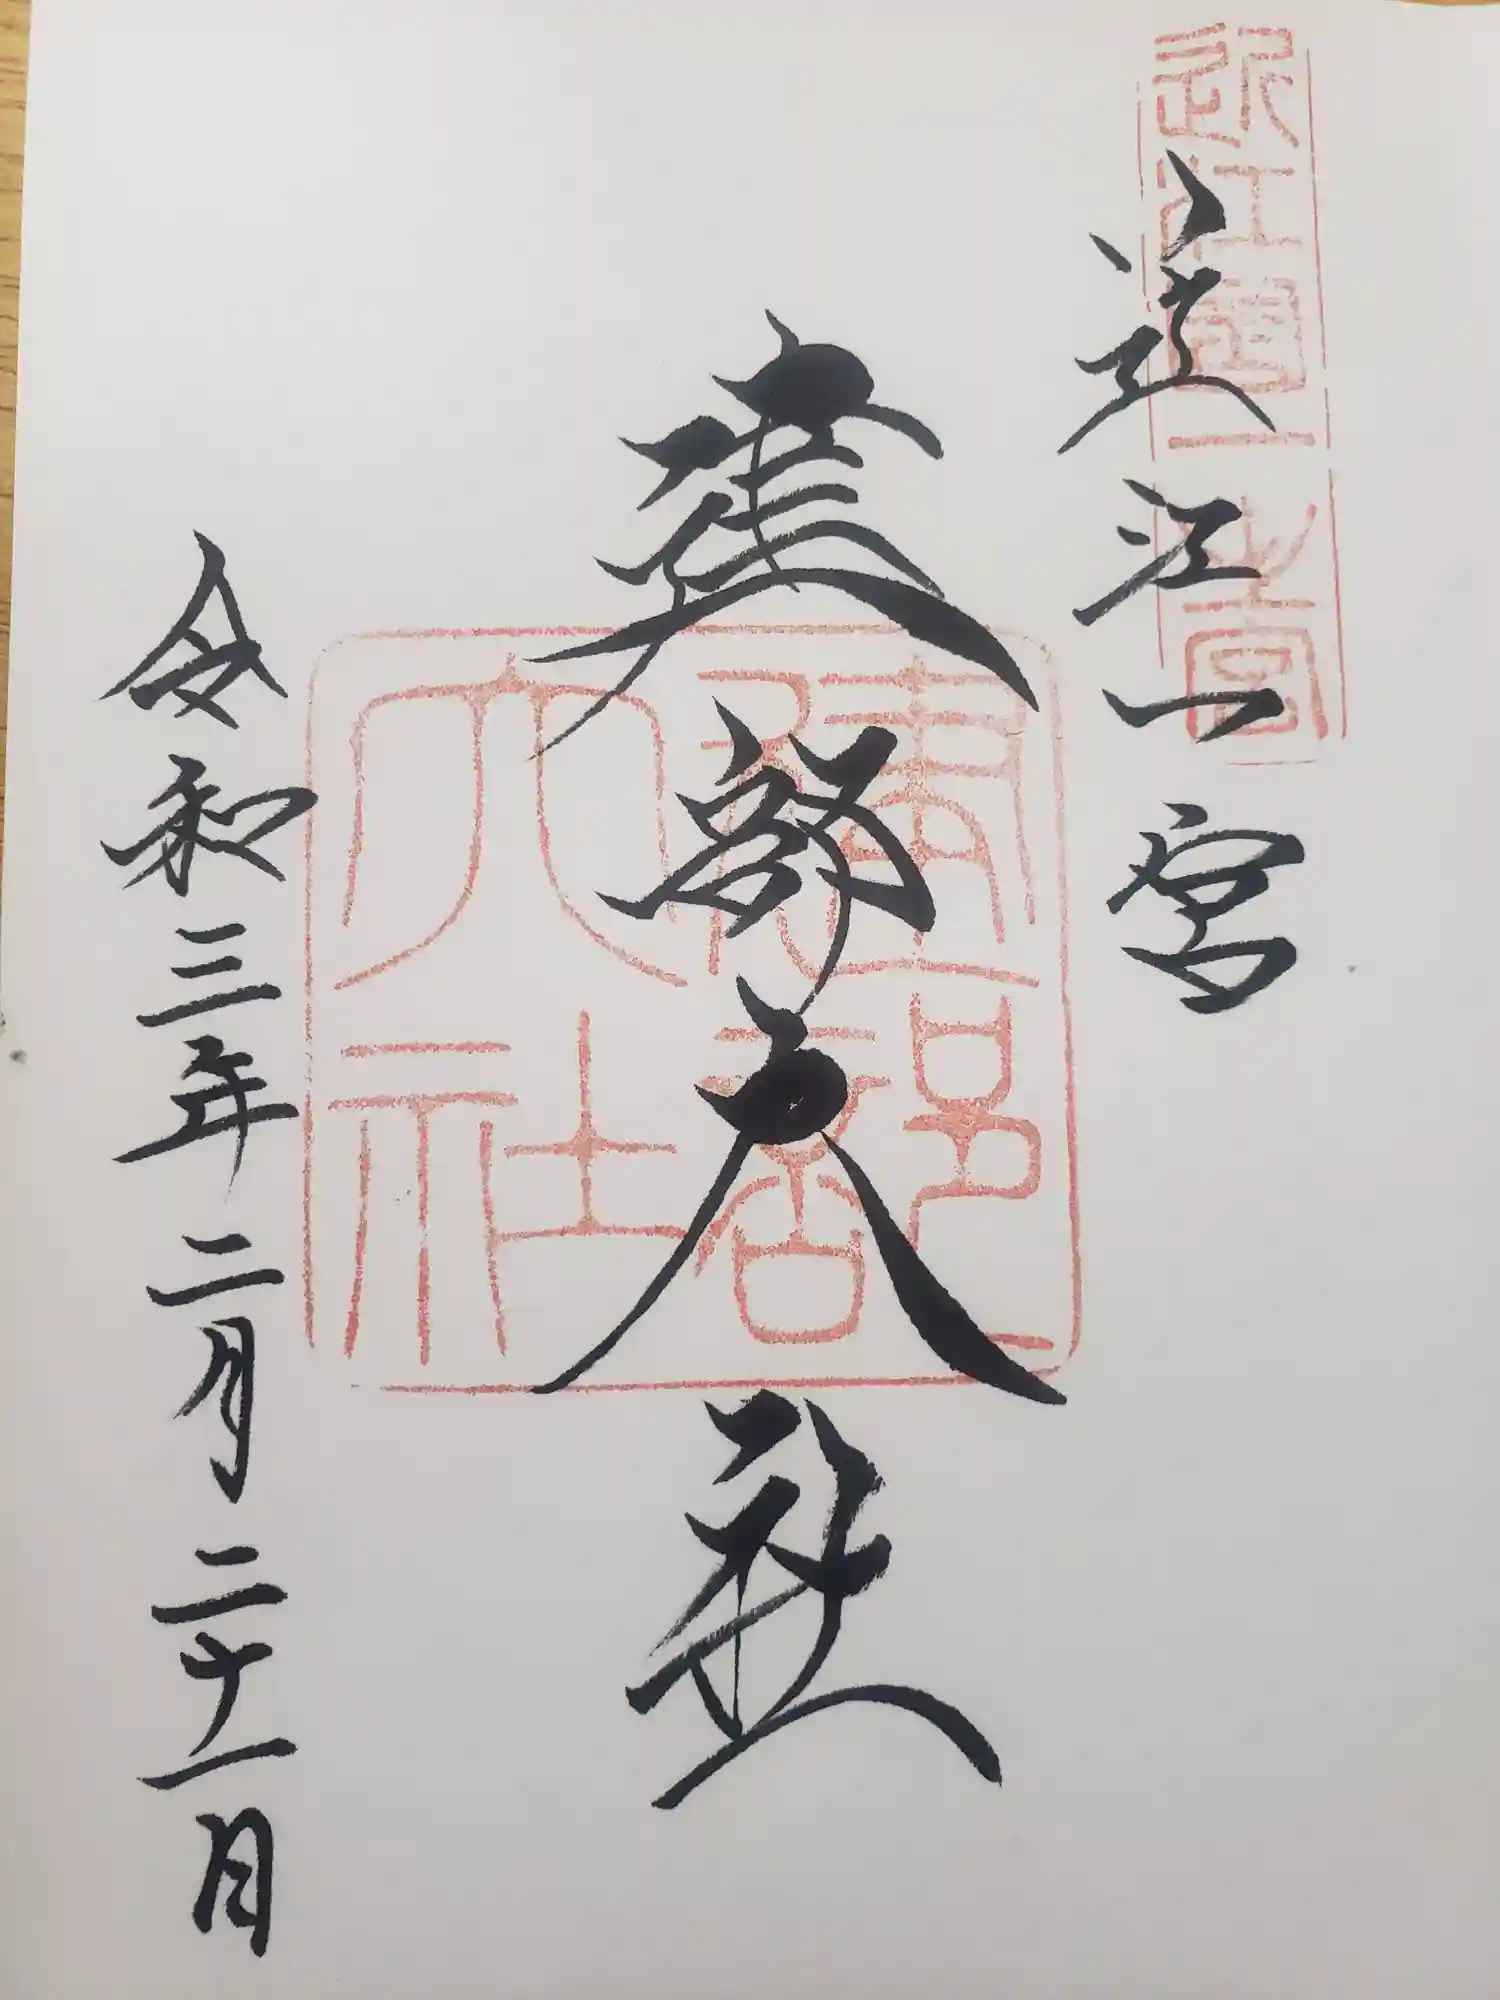 近江國一之宮
近江一宮
建部大社
建部大社
令和三年二月二十一日